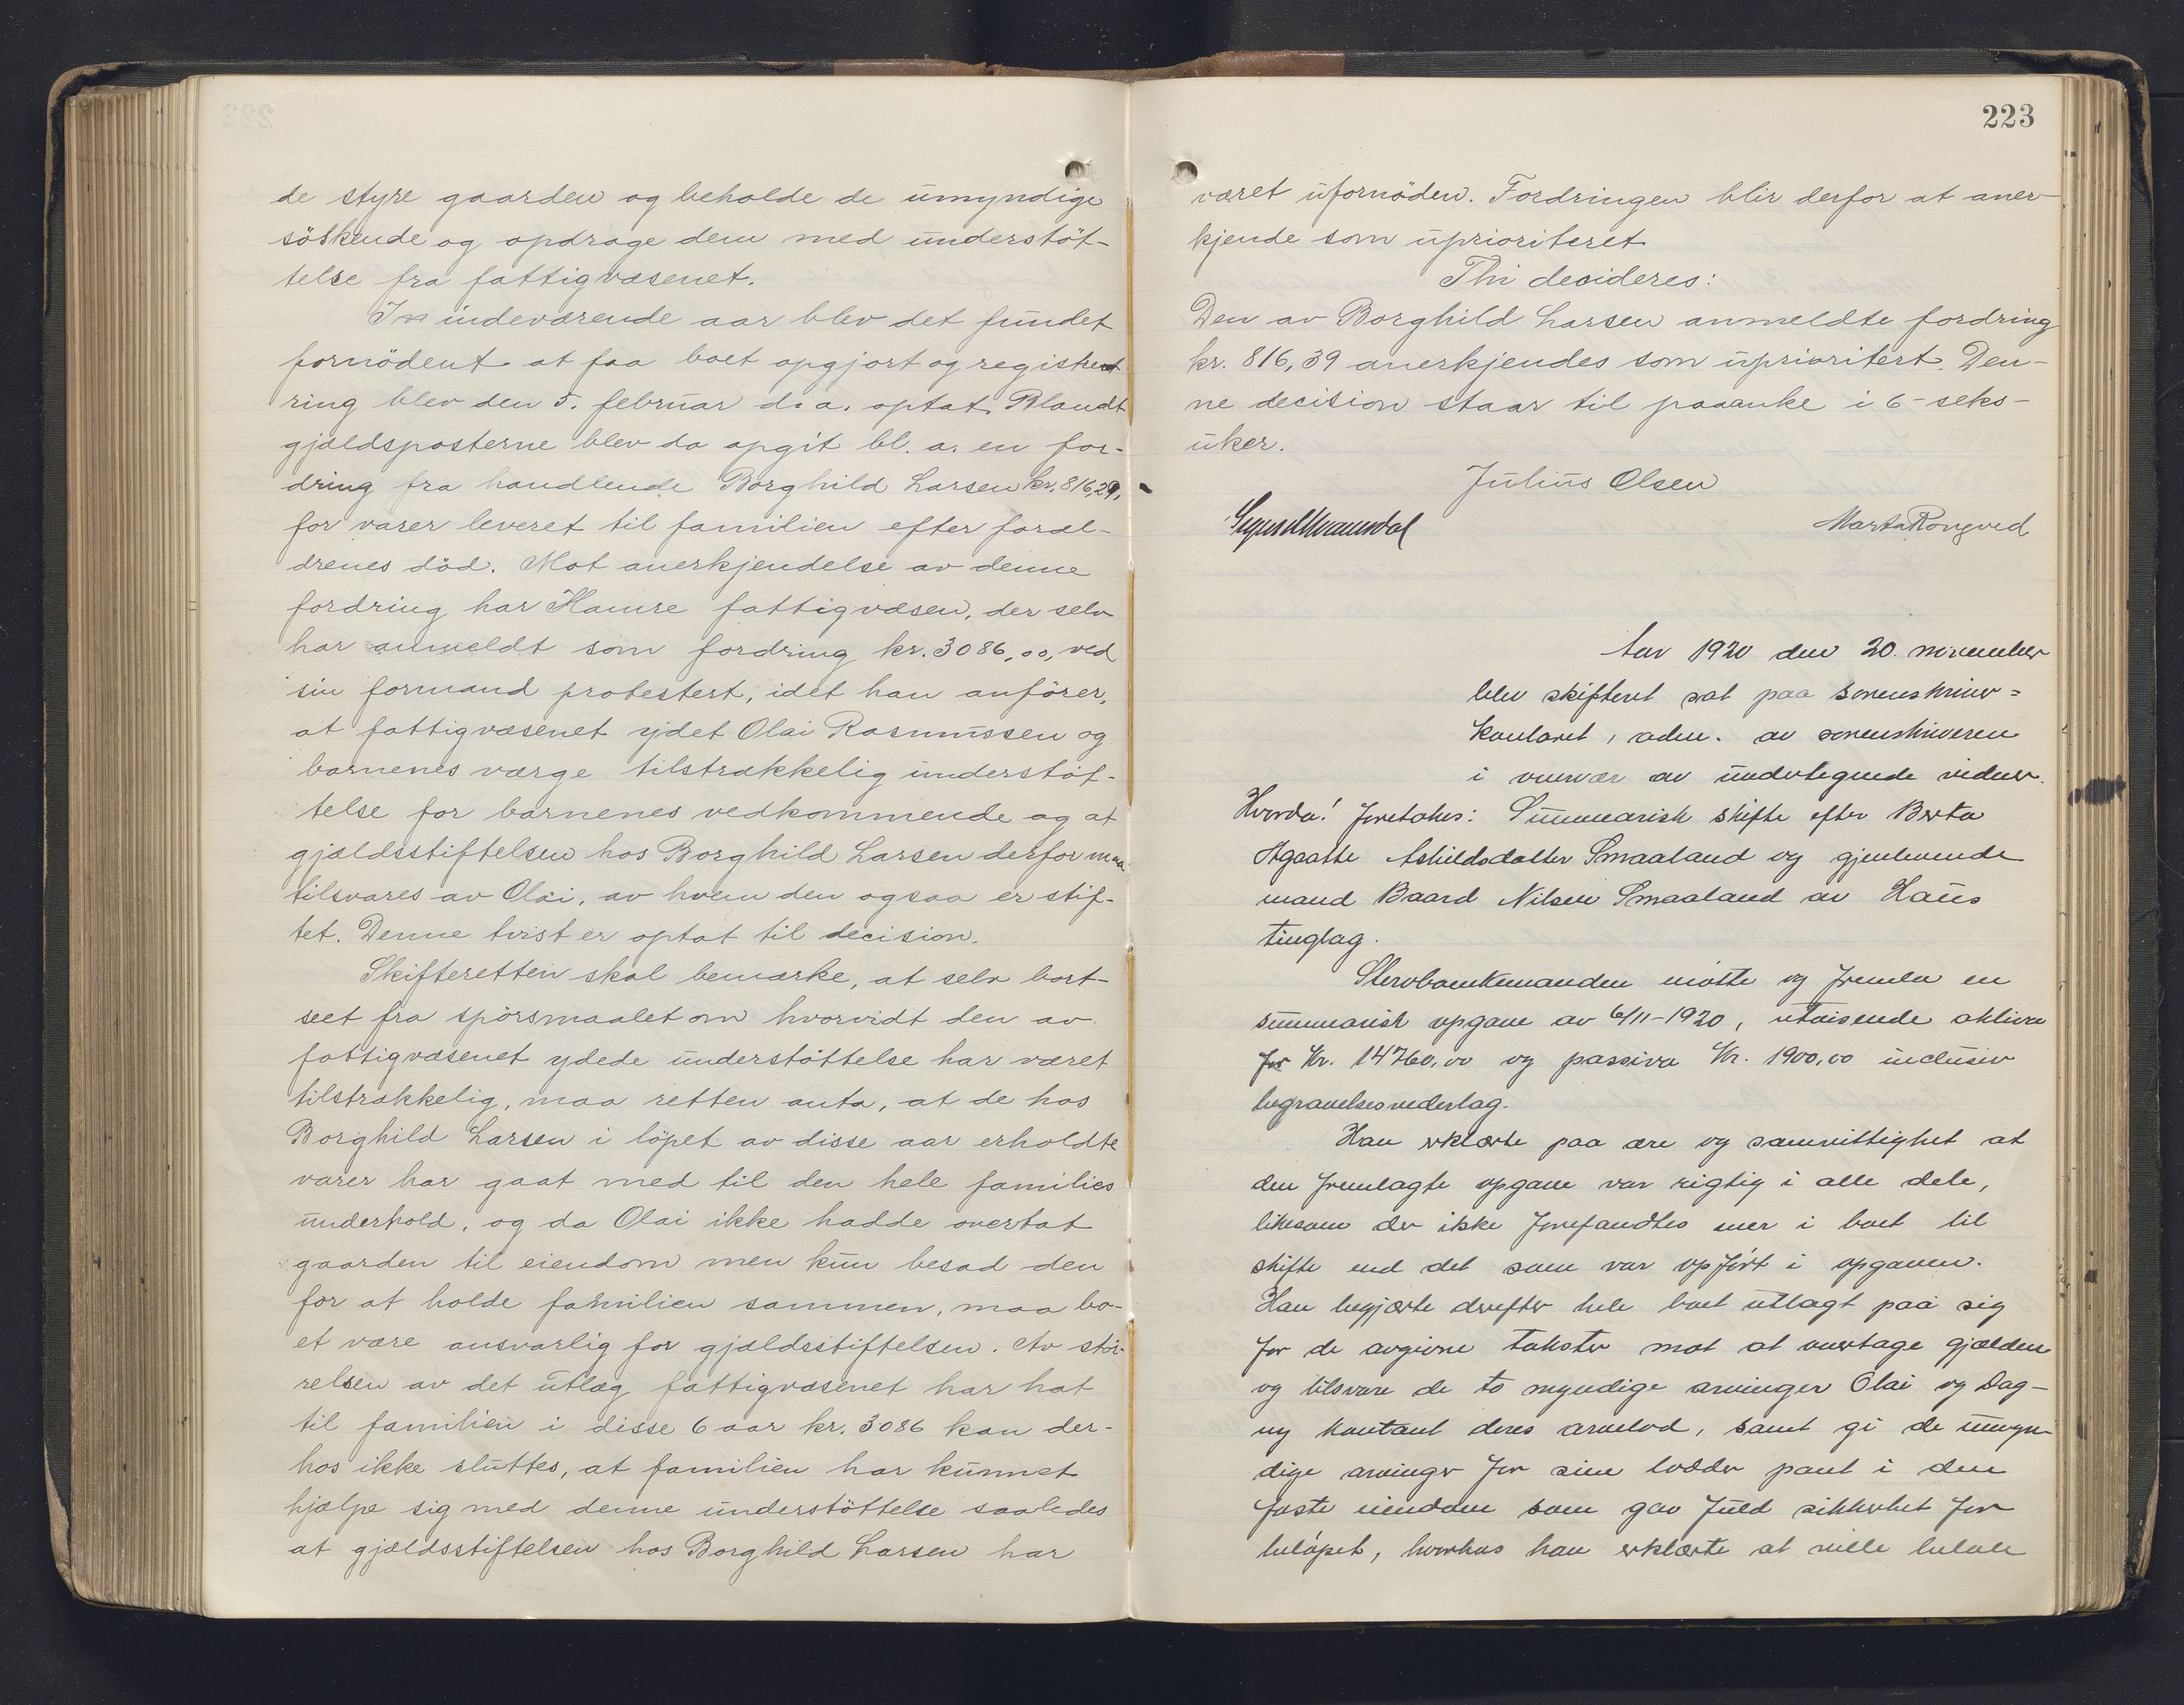 de styre gaarden og beholde de umyndige
søskende og opdrage dem med understöt-
telse fra fattigvæsenet.
I indeværende aar blev det fundet
fornödent at faa boet opgjort og registre-
ring blev den 5. februar d. a. optat. Blandt
gjældsposterne blev da opgit bl. a. en for-
dring fra handlende Borghild Larsen kr. 816,29,
for varer leveret til familien efter foræl-
drenes död. Mot anerkjendelse av denne
fordring har Hamre fattigvæsen, der selv
har anmeldt som fordring kr. 3086,00, ved
sin formand protestert, idet han anförer,
at fattigvæsenet ydet Olai Rasmussen og
barnenes værge tilstrækkelig understöt-
telse for barnenes vedkommende og at
gjældsstiftelsen hos Borghild Larsen derfor maa
tilsvares av Olai, av hvem den ogsaa er stif-
tet. Denne tvist er optat til decision.
Skifteretten skal bemærke, at selv bort-
seet fra spörsmaalet om hvorvidt den av
fattigvæsenet ydede understöttelse har været
tilstrækkelig, maa retten anta, at de hos
Borghild Larsen i löpet av disse aar erholdte
varer har gaat med til den hele families
underhold, og da Olai ikke hadde overtat
gaarden til eiendom men kun besad den
for at holde familien sammen, maa bo-
et være ansvarlig for gjældsstiftelsen. Av stör-
relsen av det utlæg fattigvæsenet har hat
til familien i disse 6 aar kr. 3086 kan der-
hos ikke sluttes, at familien har kunnet
hjælpe sig med denne understöttelse saaledes
at gjældsstiftelsen hos Borghild Larsen har
223
været ufornöden. Fordringen blir derfor at aner-
kjende som uprioriteret.
Thi decideres:
Den av Borghild Larsen anmeldte fordring
kr. 816,39 anerkjendes som uprioritert. Den-
ne decision staar til paaanke i 6 - seks -
uker.
Julius Olsen
Marta Rongved
Aar 1920 den 20. november
blev skifteret sat paa sorenskriver=
kontoret, adm. av sorenskriveren
i overvær av undertegnede vidner.
Hvorda! Foretokes: Summarisk skifte efter Berta
Agaatte Askildsdatter Smaaland og gjenlevende
mand Baard Nilsen Smaaland av Haus
tinglag.
Stervboenkemanden møtte og fremla en
summarisk opgave av 6/11-1920, utvisende aktiva
for Kr. 14760,00 og passiva Kr. 1900,00 inclusiv
begravelsesvederlag.
Han erklærte paa ære og samvittighet at
den fremlagte opgave var rigtig i alle dele,
likesom der ikke forefandtes mer i boet til
skifte end det som var opført i opgaven.
Han begjærte derefter hele boet utlagt paa sig
for de avgivne takster mot at overtage gjælden
og tilsvare de to myndige arvinger Olai og Dag-
ny kontant deres arvelod, samt gi de umyn-
dige arvinger for sine lodder pant i den
faste eiendom som gav fuld sikkerhet for
beløpet, hvorhos han erklærte at ville betale